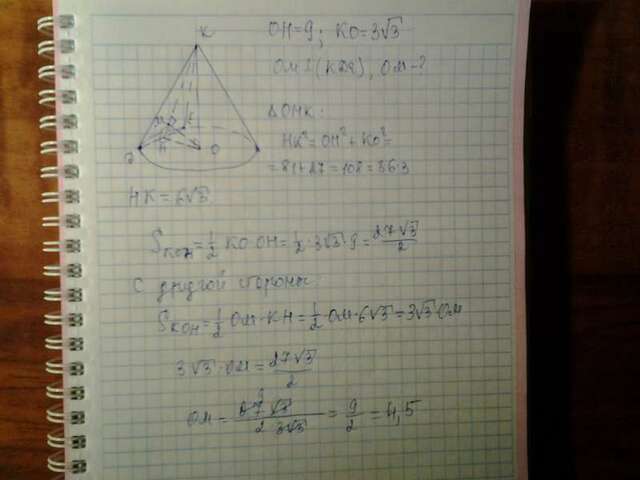 K
OH=9; KO=3√3
OM⊥(KDE), OM-?
ΔOHK:
HK²=OH²+KO²=
=81+27=108=36·3
M
E
D
H
O
HK=6√3
S_KOH=1/2 KO·OH=1/2·3√3·9=27√3/2
С другой стороны:
S_KOH=1/2 OM·KH=1/2 OM·6√3=3√3·OM
3√3·OM=27√3/2
OM=27√3/2·3√3=9/2=4,5